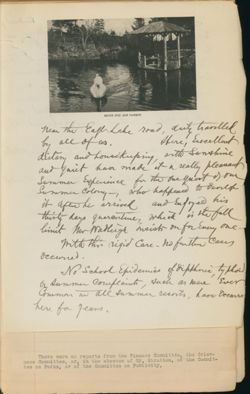 Near the East Lake road, duly travelled
by all of us. Here, Excellent
dietary and housekeeping, with Sunshine
and quiet have made it a really pleasant
Summer Experience for the one guest of our
Summer Colony, who happened to develop
it after he arrived and Enjoyed his
thirty days quarantine, which is the full
limit Mr Wadleigh insists on for Every one.
With this rigid care. No further Cases
occurred.
No School Epidemics of Diptheria, typhoid
or Summer Complaints, such as are Ever
Common in all Summer resorts, have occurred
here for years.
There were no reports from the Finance Committee, the Grievance
Committee, or, in the absence of Mr. Stratton, of the Committee
on Parks, or of the Committee on Publicity.